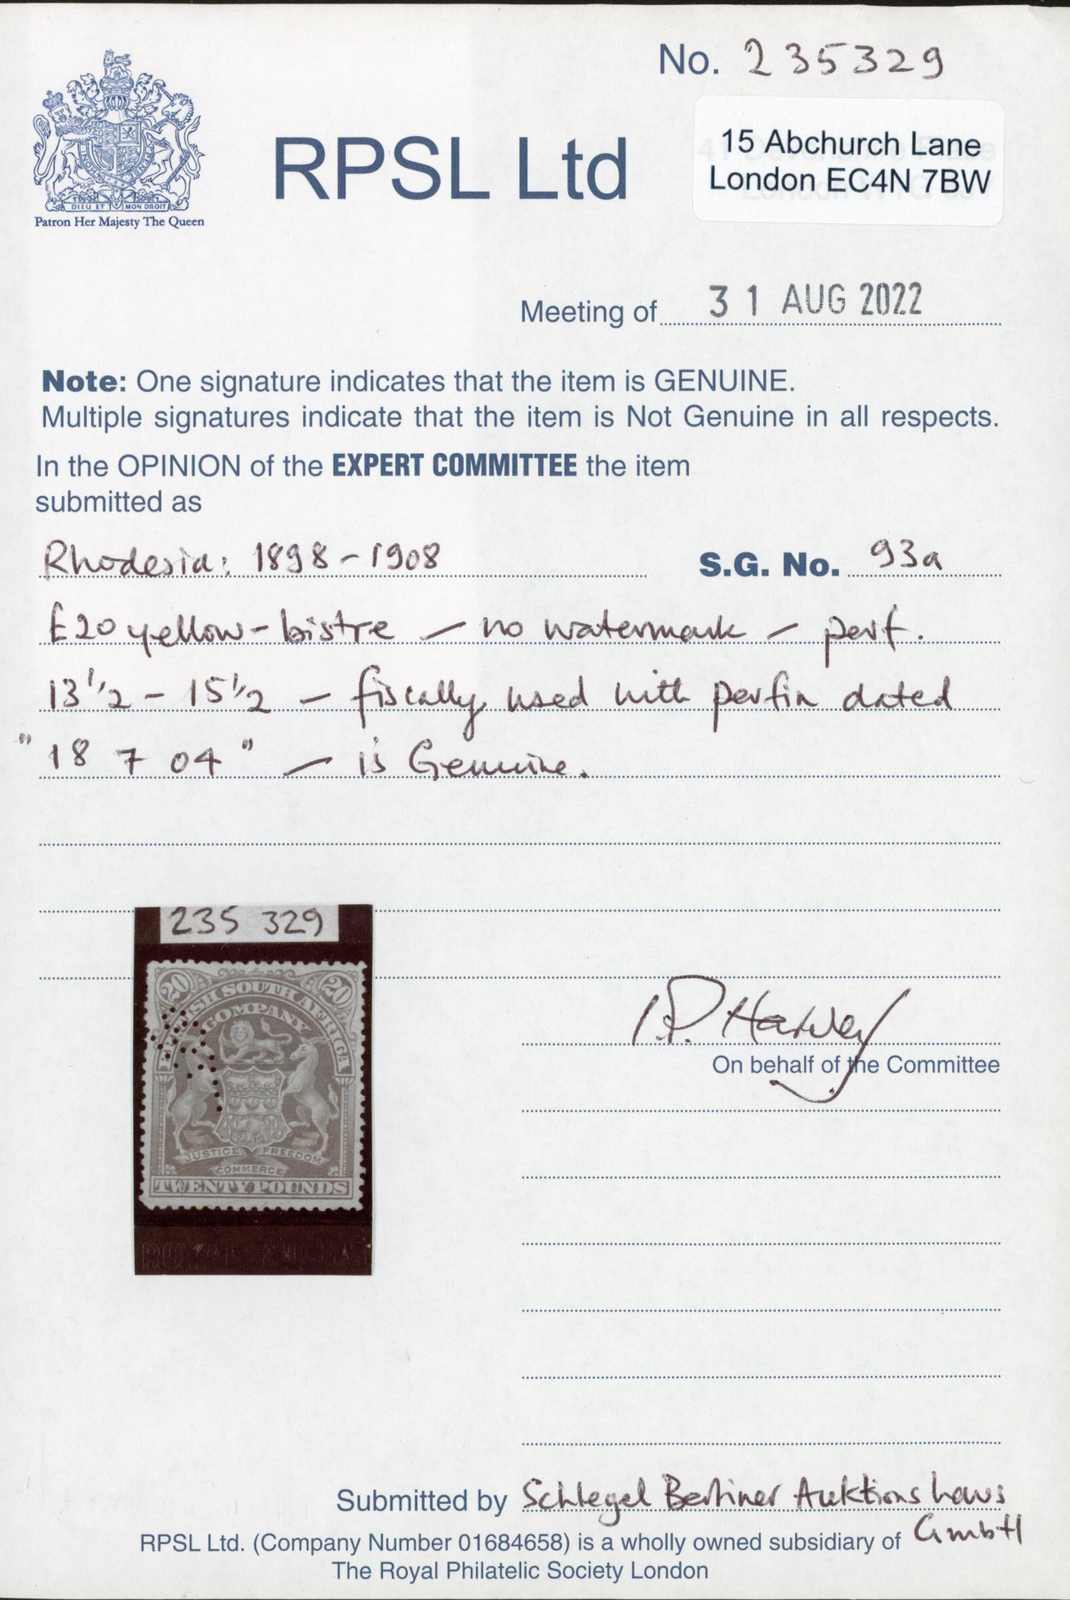 No. 235329
RPSL Ltd
15 Abchurch Lane
London EC4N 7BW
DIEU ET MON DROIT
Patron Her Majesty The Queen
Meeting of 31 AUG 2022
Note: One signature indicates that the item is GENUINE.
Multiple signatures indicate that the item is Not Genuine in all respects.
In the OPINION of the EXPERT COMMITTEE the item
submitted as
Rhodesia: 1898-1908 S.G. No. 93a
£20 yellow-bistre - no watermark - perf.
13 1/2 - 15 1/2 - fiscally used with perfin dated
"18 7 04" - is Genuine.
235 329
20 20
BRITISH SOUTH AFRICA
COMPANY
JUSTICE FREEDOM
COMMERCE
TWENTY POUNDS
I.P. Harvey
On behalf of the Committee
Submitted by Schlegel Berliner Auktionshaus
GmbH
RPSL Ltd. (Company Number 01684658) is a wholly owned subsidiary of
The Royal Philatelic Society London